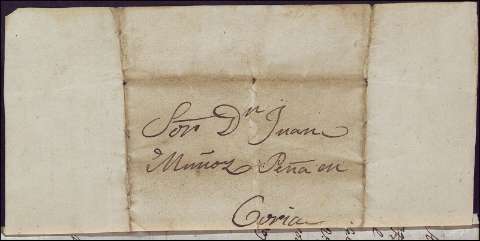 Sor Dn Juan
Muñoz Peña en
Coria